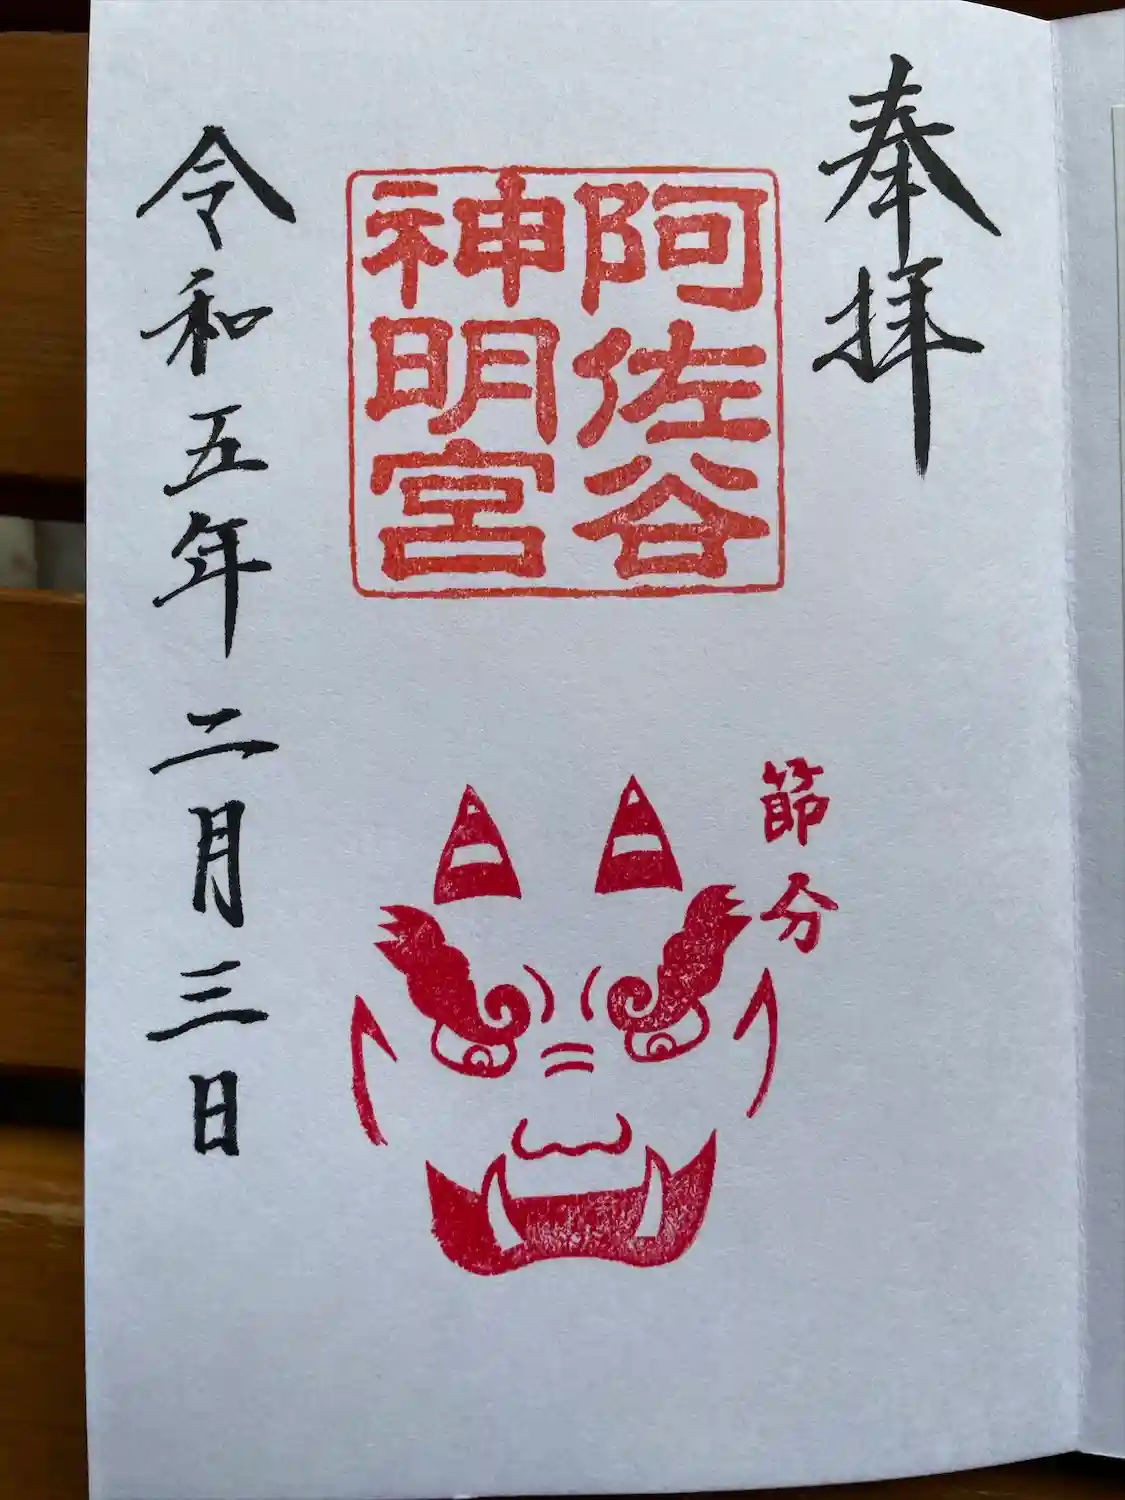 奉拝
阿佐谷
神明宮
節分
令和五年二月三日